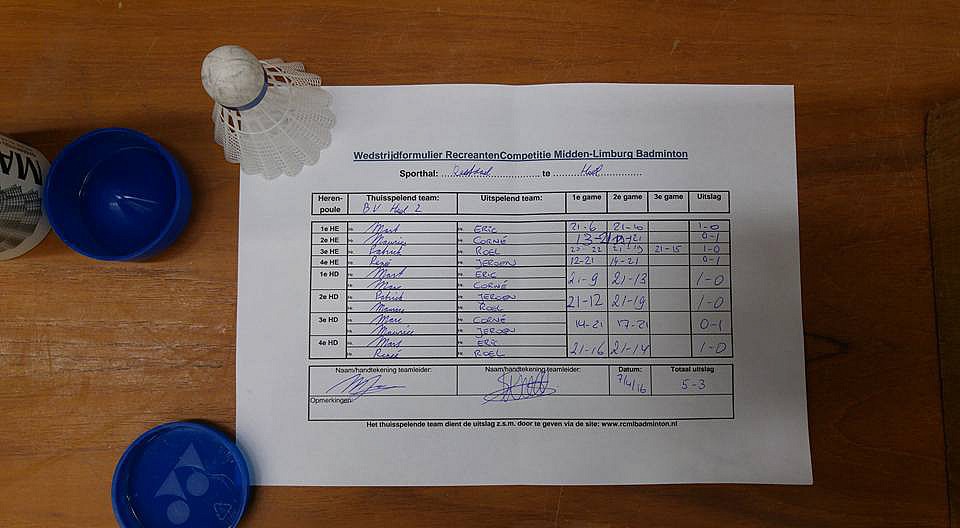 MA
Wedstrijdformulier RecreantenCompetitie Midden-Limburg Badminton
Sporthal: te Heel
Heren-poule Thuisspelend team: Uitspelend team: 1e game 2e game 3e game Uitslag
BV Heel 2
1e HE Mart ERIC 21-6 21-10 1-0
2e HE Maurice CORNÉ 0-1
3e HE Patrick ROEL 20-22 21-19 21-15 1-0
4e HE René JEROEN 12-21 14-21 0-1
1e HD Mart ERIC 21-9 21-13 1-0
Marc CORNÉ
2e HD Patrick JEROEN 21-12 21-19 1-0
Maurice ROEL
3e HD Marc CORNÉ 14-21 17-21 0-1
Maurice JEROEN
4e HD Mart ERIC 21-16 21-14 1-0
René ROEL
Naam/handtekening teamleider: Naam/handtekening teamleider: Datum: Totaal uitslag
7/4/16 5-3
Opmerkingen:
Het thuisspelende team dient de uitslag z.s.m. door te geven via de site: www.rcmlbadminton.nl